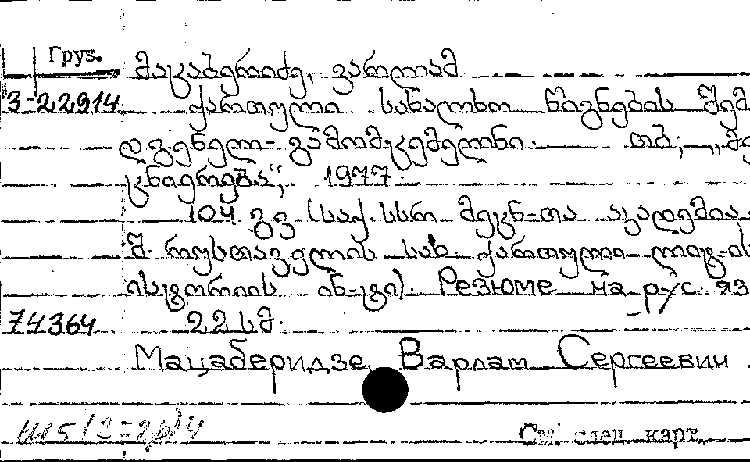 Груз.
მაცაბერიძე, ვარლამ
3-22914 ქართული სახალხო წიგნების შემ
დგენელ-გამომცემელნი. თბ., „მე
ცნიერება“, 1977.
104 გვ (საქ. სსრ მეცნ-თა აკადემია
შ. რუსთაველის სახ. ქართული ლიტ-ის
ისტორიის ინ-ტი). Резюме на рус яз
74364 22 სმ.
Мацаберидзе Варлам Сергеевич
См. след. карт.